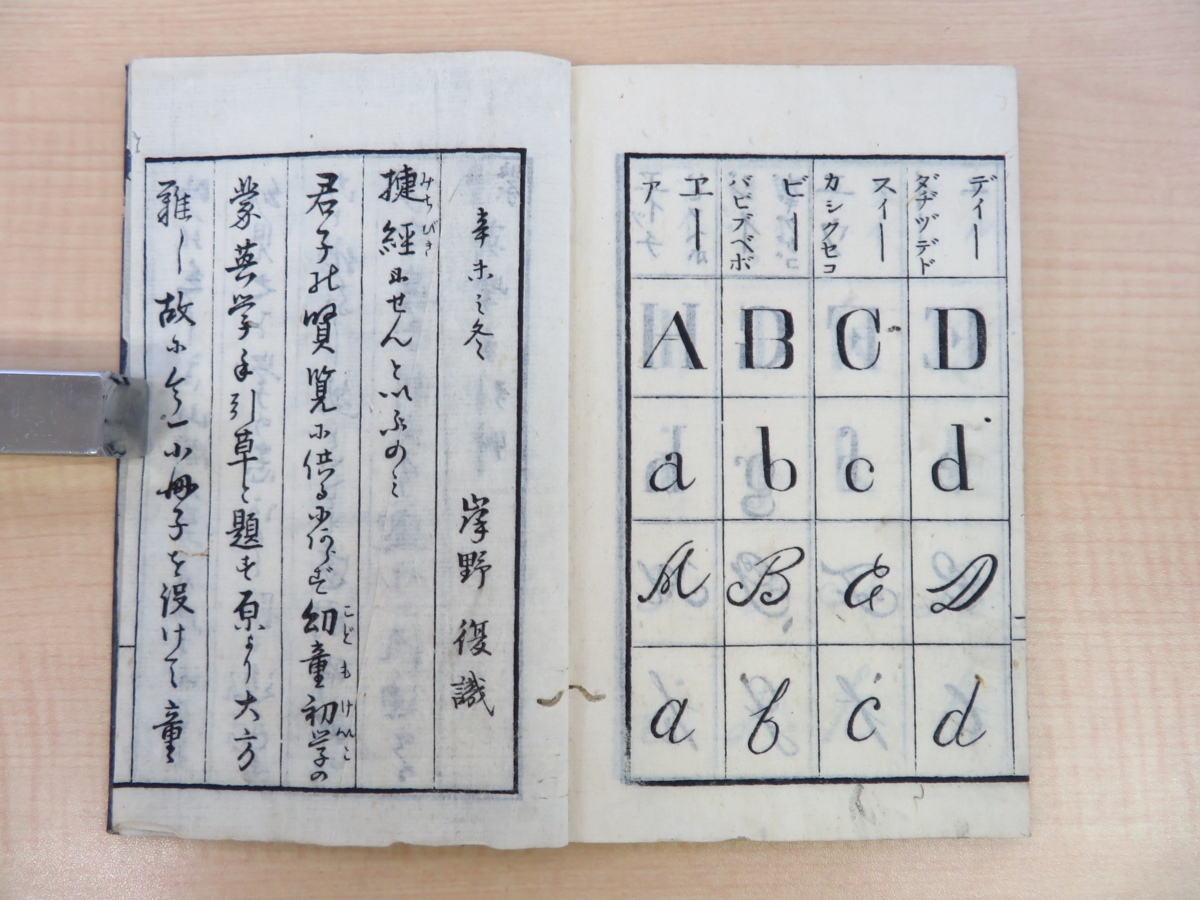 難し故に今一小冊子を設けて童
蒙英学手引草と題す原より大方
君子の賢覧に供るにあらず幼童初学の
こども けいこ
捷經にせんといふのミ
みちびき
辛未之冬 岸野復識
ヱー
ア
ビー
バビブベボ
スィー
カシクセコ
ディー
ダヂヅデド
A B C D
a b c d
A B C D
a b c d